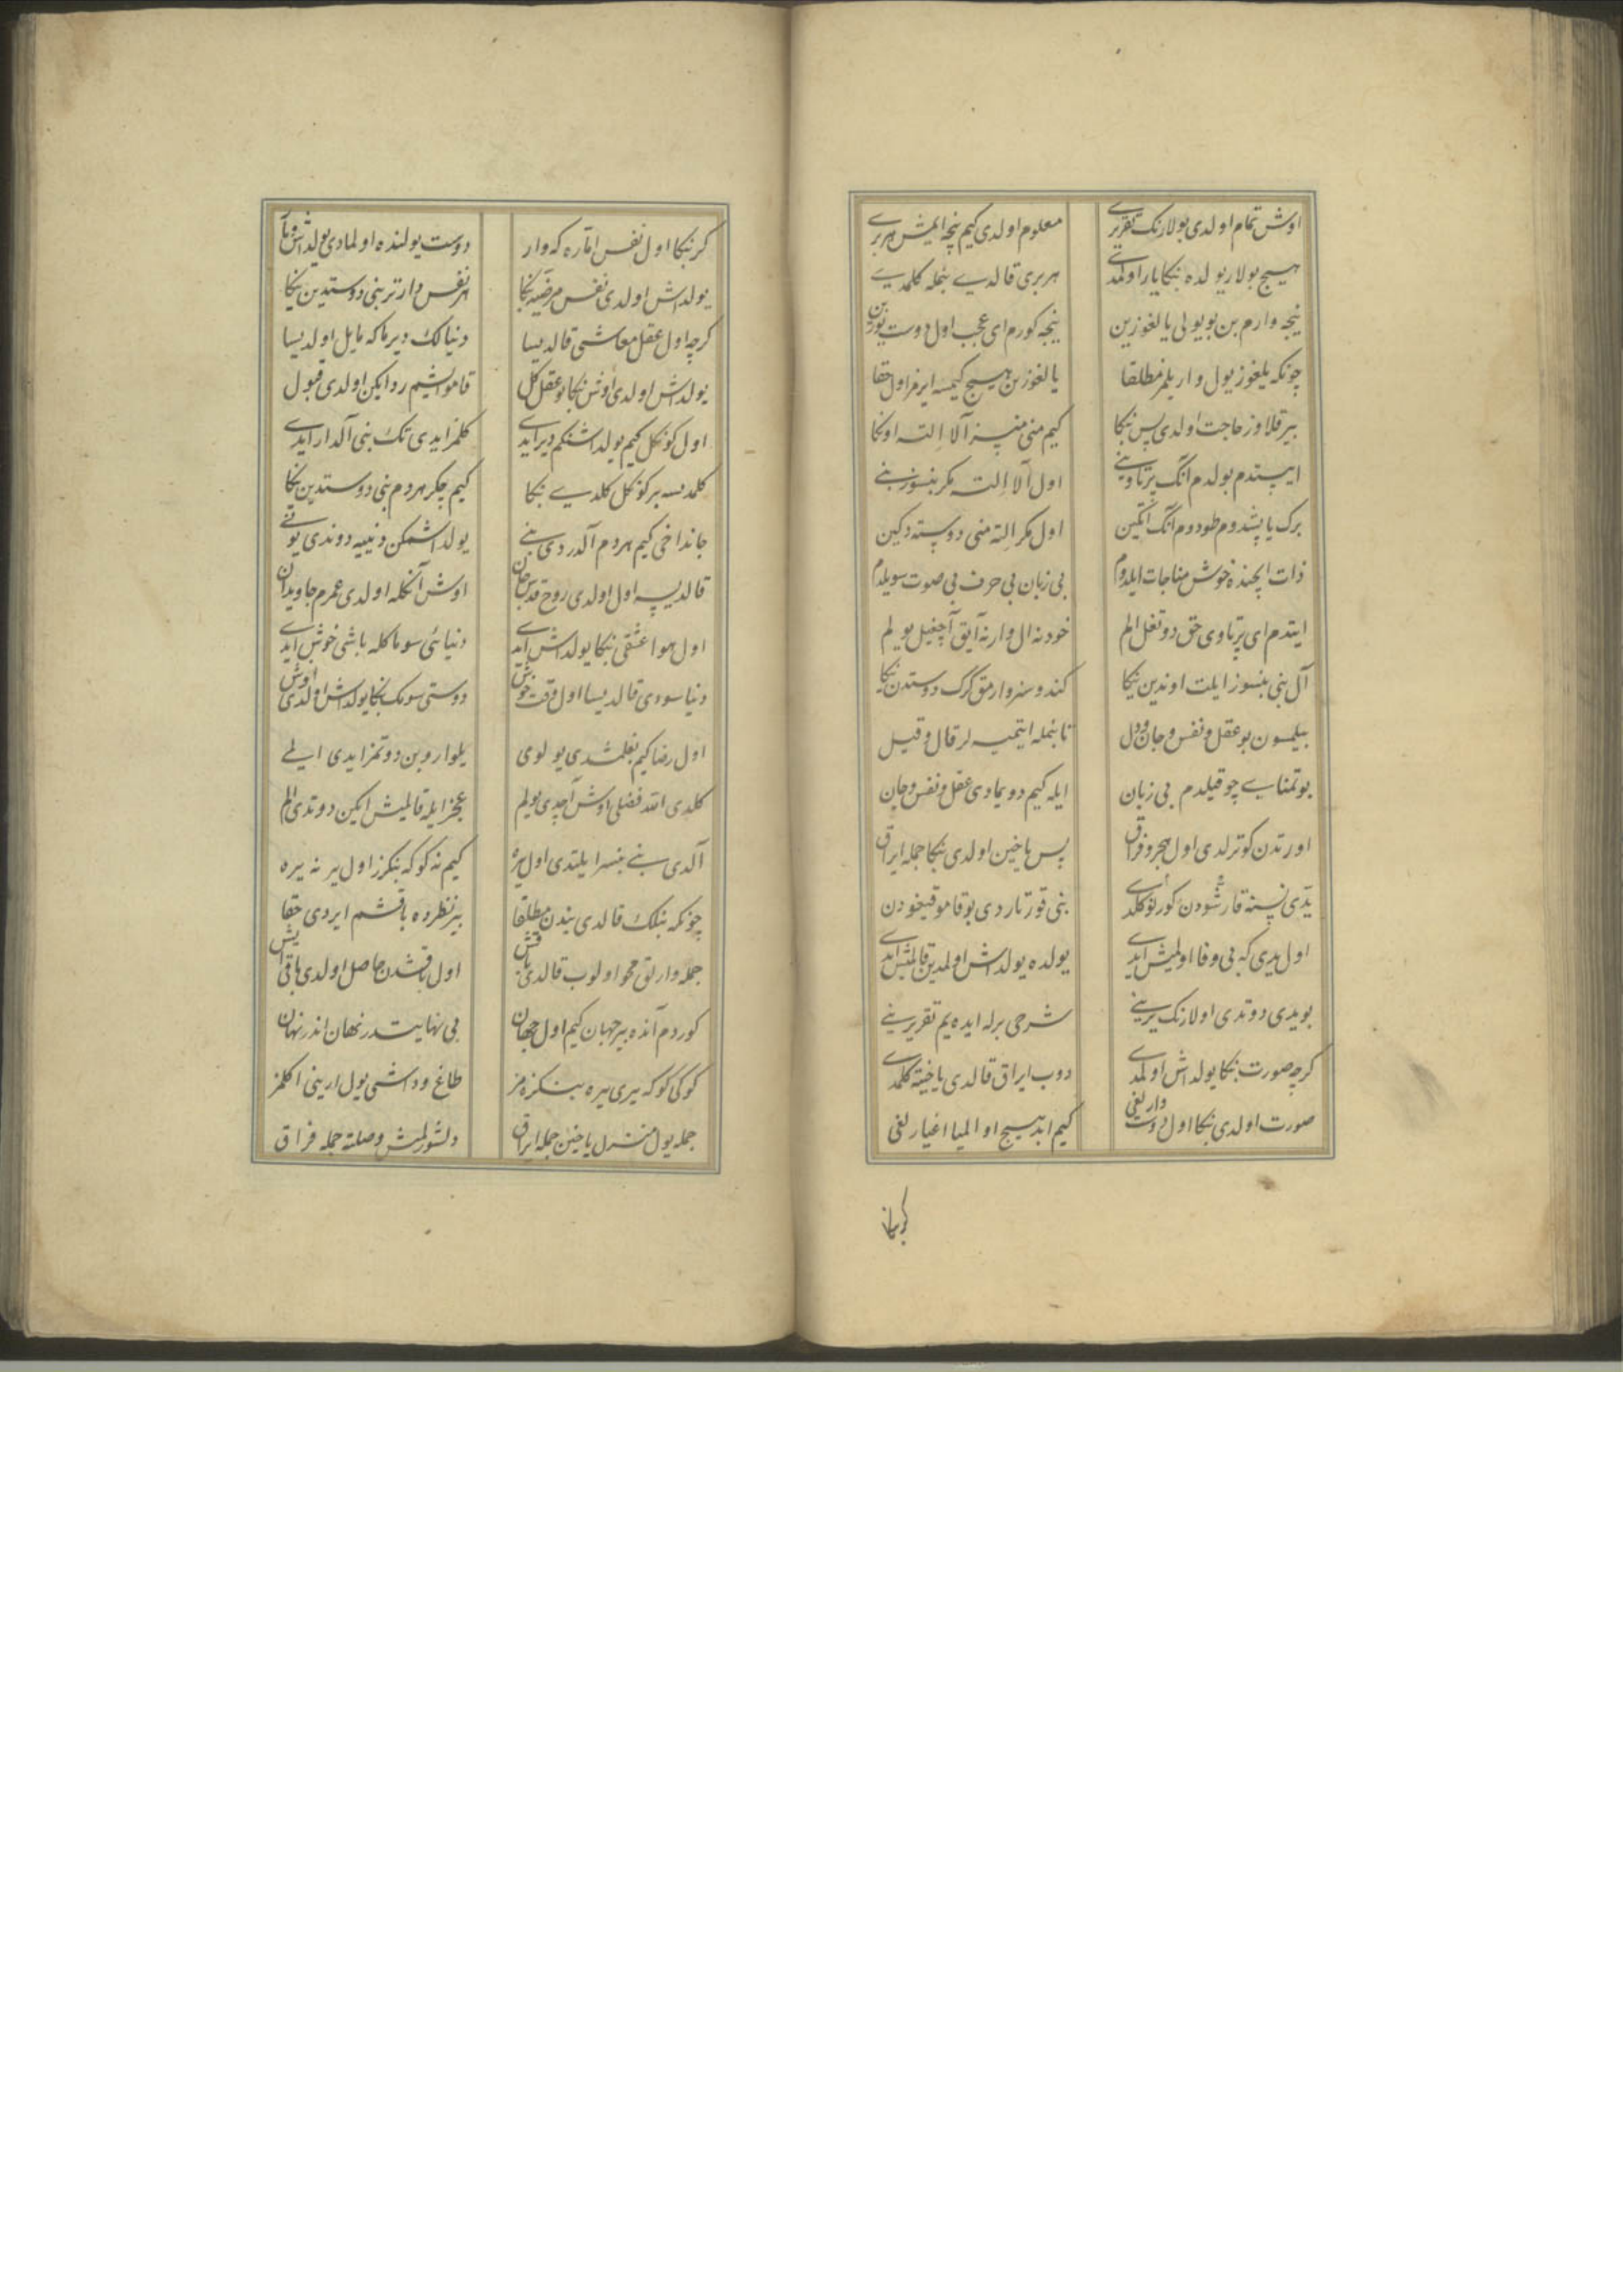 اوش تمام اولدی بولارنک تقریری معلوم اولدی کیم نیجه ایمش هر بری
هیچ بولار یولده بنکا یار اولمدی هر بری قالدی بنمله کلمدی
نیجه وارم بن بو یولی یالغوزین نیجه کورم ای عجب اول دوست یوزین
چونکه یلغوز یول واریلمز مطلقا یالغوزین هیچ کیمسه ایرمز اول حقا
بیر قلاوز حاجت اولدی پس بنکا کیم منی منسز آلا التـه اونکا
ایستدم بولدم آنک پرتاوینی اول آلا التـه مکر بنسوز بنی
برک یاپشدوم طودوم آنک اتکین اول مکر الته منی دوسته دکین
ذات ایچنده خوش مناجات ایلدوم بی زبان بی حرف بی صوت سویلدم
ایتدم ای پرتاوی حق دوتغل الم خود نه ال وار نه آیق آچغیل یولم
آل بنی بنسوز ایلت اوندین یکا کندوسنز وارمق کرک دوستدن یکا
بیلمسون بو عقل و نفس و جان و دل تا بنمله ایتمیه لر قال و قیل
بو تمنایی چو قیلدم بی زبان ایله کیم دویمادی عقل و نفس و جان
اورتدن کوترلدی اول هجر و فراق پس یاخین اولدی بنکا جمله ایراق
یتدی نسنه قارشودن کورنو کلدی بنی قورتاردی بو قامو قیغودن
اول یدی که بی وفا اولمیش ایدی یولده یولداش اولمدین قالمش ایدی
بو یدی دوتدی اولارنک یرینی شرحی برله ایده یم تقریرینی
کرچه صورت بنکا یولداش اولمدی دوب ایراق قالدی یاخینه کلمدی
صورت اولدی بنکا اول دوست وارلغی کیم ابد هیچ اولمیا اغیارلغی
کر بنکا
کر بنکا اول نفس اماره که وار دوست یولنده اولمادی یولداش و یار
یولداش اولدی نفس مرضیه بنکا هر نفس دارتر بنی دوستدین یکا
کرچه اول عقل معاشی قالدیسا دنیالک دیرماکه مایل اولدیسا
یولداش اولدی اوش بنکا بو عقل کل قامو ایشم رد ایکن اولدی قبول
اول کوکل کیم یولداشنکم دیر ایدی کلمز ایدی تک بنی آلدار ایدی
کلمدیسه بر کوکل کلدی بنکا کیم چکر هر دم بنی دوستدین یکا
جانداخی کیم هر دم آلدردی بنی یولداشمکن دنییه دوندی یونی
قالدیسه اول اولدی روح قدس جان اوش آنکله اولدی عمرم جاویدان
اول هوا عشقی بنکا یولداش ایدی دنیائی سوماکله باشی خوش ایدی
دنیا سودی قالدیسا اول وقت خوش دوستی سومک بنکا یولداش اولدی اوش
اول رضا کیم بغلمشدی یولومی یلوارو بن دوتمز ایدی الی
کلدی الله فضلی اوش آچدی یولم عجز ایله قالمیش ایکن دوتدی الم
آلدی بنی بنسز ایلتدی اول یره کیم نه کوکه بنکزر اول یر نه یره
چونکه بنلک قالدی بندن مطلقا بیر نظرده باقشم ایردی حقا
جمله وارلق محو اولوب قالدی باقش اول باقشدن حاصل اولدی باقی ایش
کوردم آنده بیر جهان کیم اول جهان بی نهایتدر نهان اندر نهان
کوکی کوکه یری یره بنکزه مز طاغ و داشی یول ارینی اکلمز
جمله یول منزل یاخین جمله ایراق دلشورلمش وصلته جمله فراق